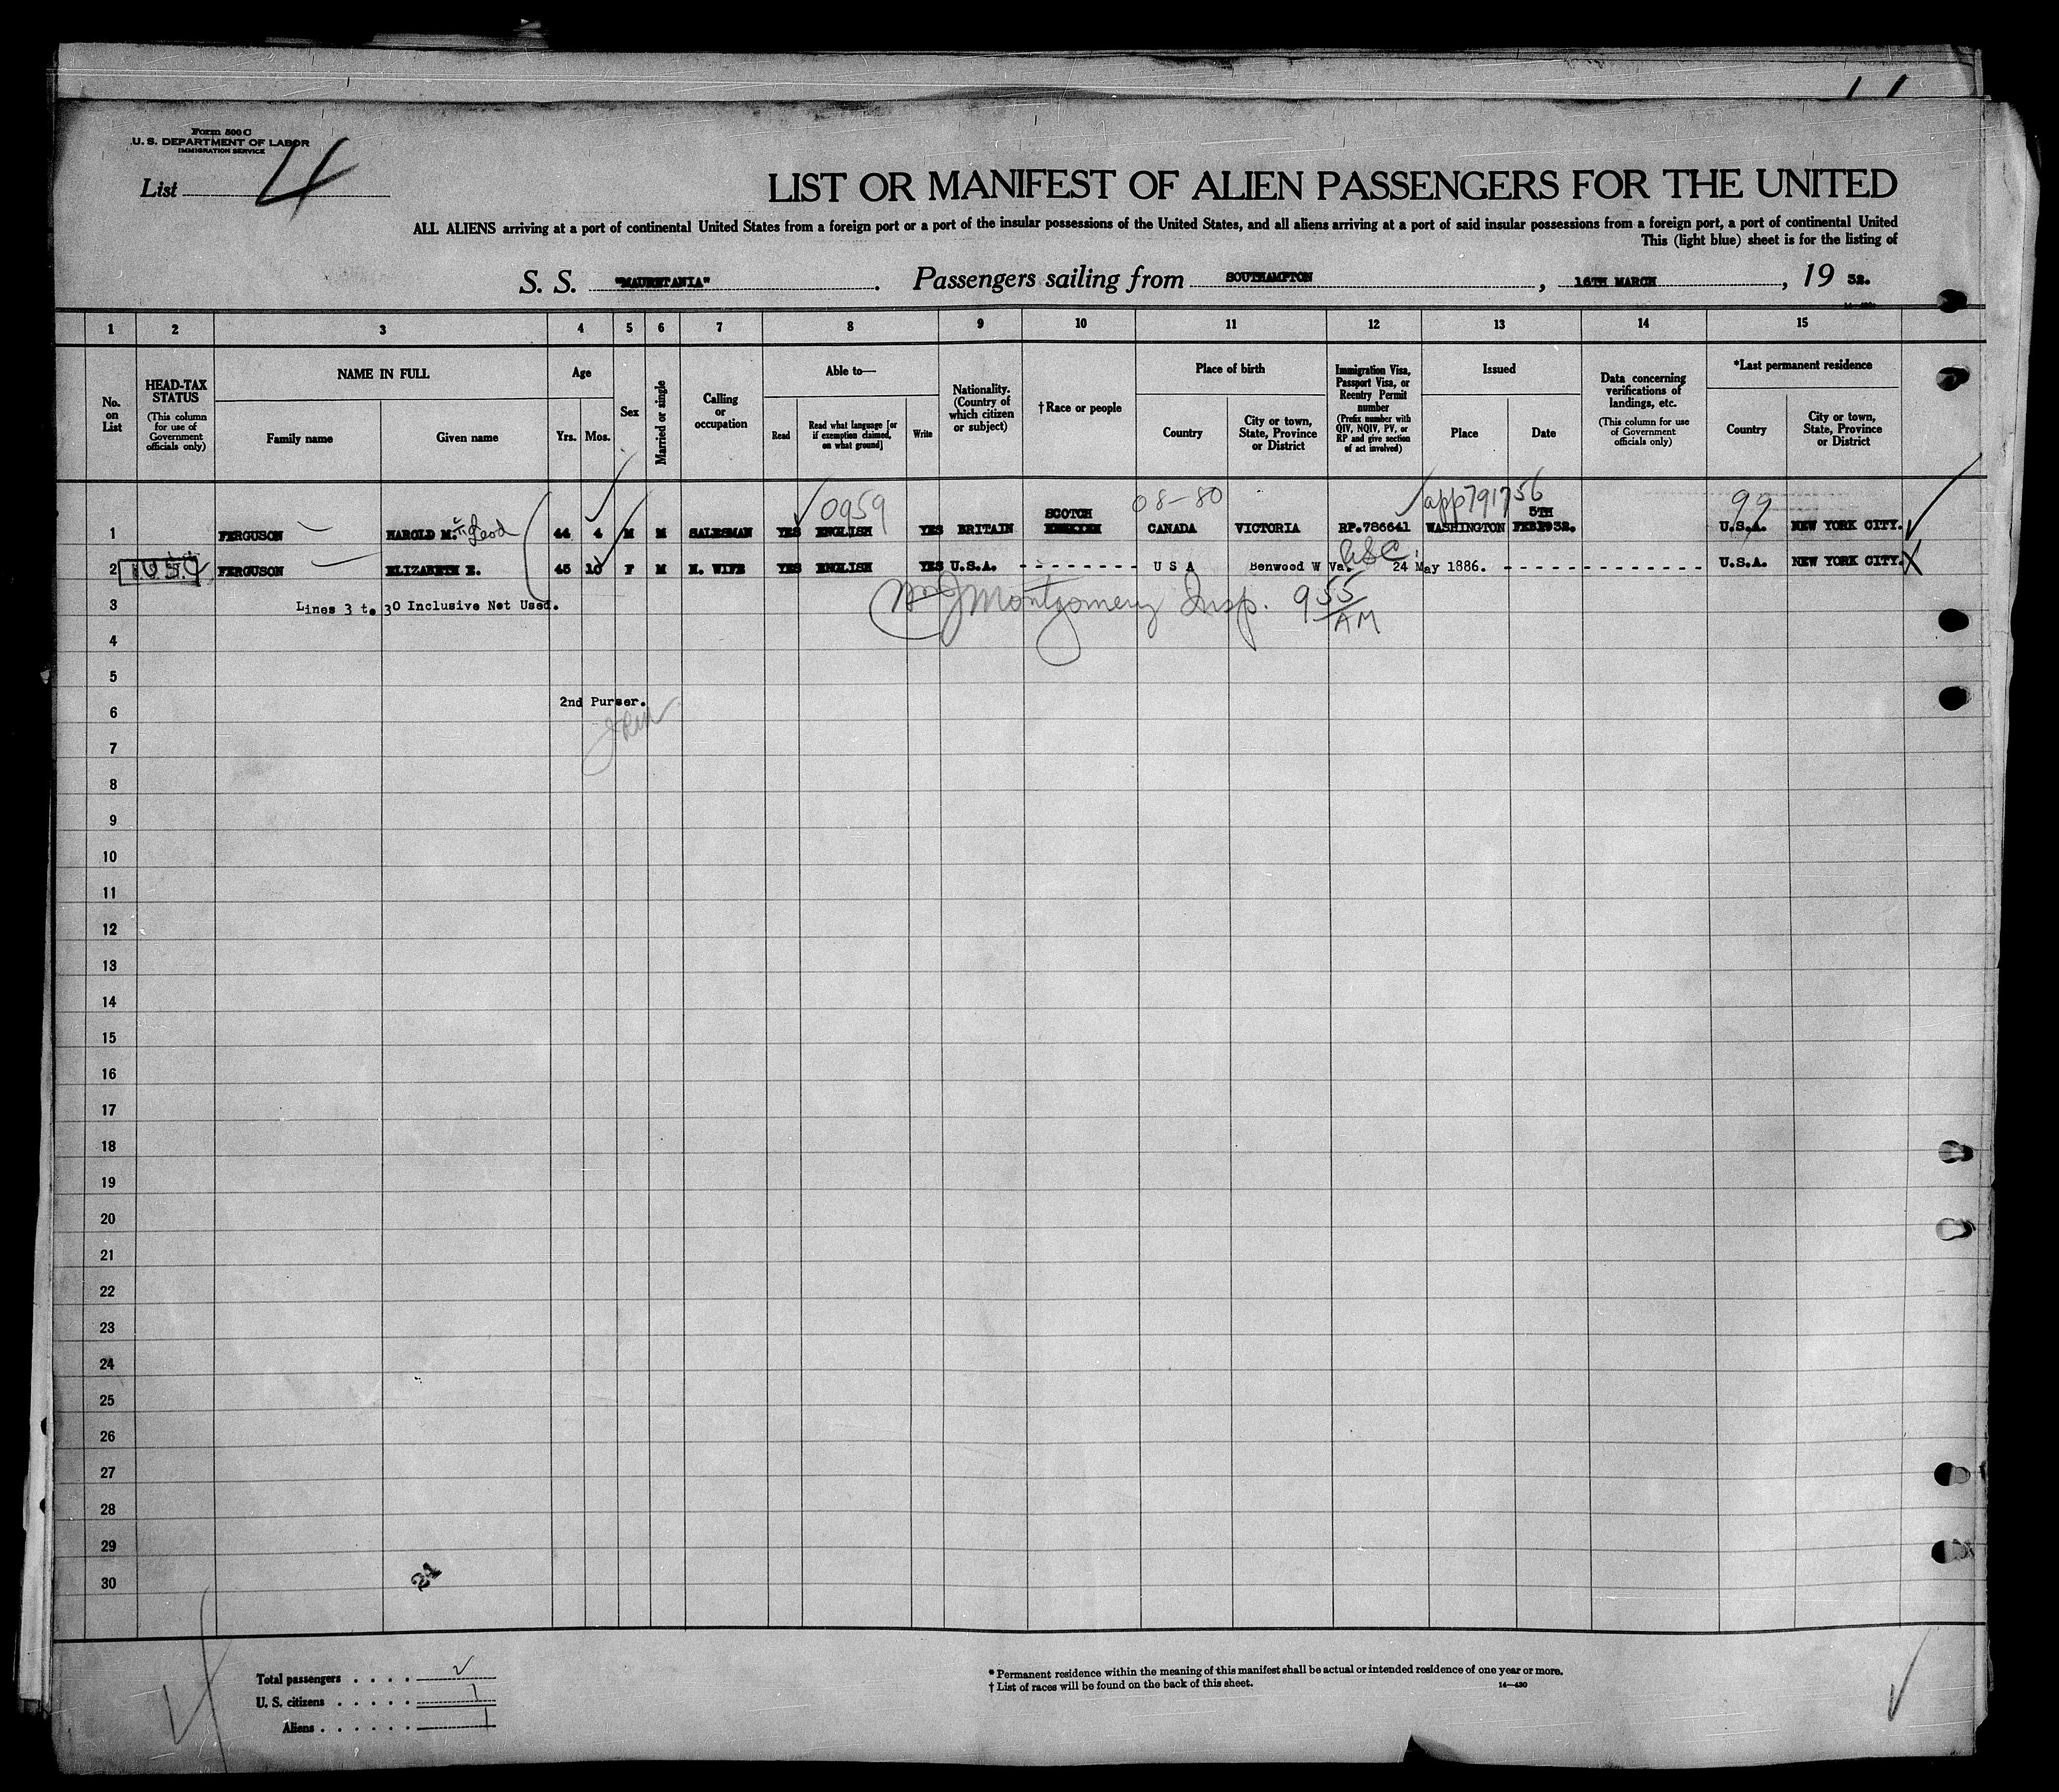 Form 500 C
U. S. DEPARTMENT OF LABOR
IMMIGRATION SERVICE
List 4
LIST OR MANIFEST OF ALIEN PASSENGERS FOR THE UNITED
ALL ALIENS arriving at a port of continental United States from a foreign port or a port of the insular possessions of the United States, and all aliens arriving at a port of said insular possessions from a foreign port, a port of continental United
This (light blue) sheet is for the listing of
S. S. "MAURETANIA". Passengers sailing from SOUTHAMPTON, 16TH MARCH, 19 32.
1 2 3 4 5 6 7 8 9 10 11 12 13 14 15
No. on List
HEAD-TAX STATUS (This column for use of Government officials only)
NAME IN FULL
Family name Given name
Age
Yrs. Mos.
Sex
Married or single
Calling or occupation
Able to—
Read Read what language [or if exemption claimed, on what ground] Write
Nationality. (Country of which citizen or subject)
†Race or people
Place of birth
Country City or town, State, Province or District
Immigration Visa, Passport Visa, or Reentry Permit number (Prefix number with QIV, NQIV, PV, or RP and give section of act involved)
Issued
Place Date
Data concerning verifications of landings, etc. (This column for use of Government officials only)
*Last permanent residence
Country City or town, State, Province or District
0959 08-80 app791756 99
1 FERGUSON HAROLD M. Leod 44 4 M M SALESMAN YES ENGLISH YES BRITAIN SCOTCH CANADA VICTORIA RP.786641 WASHINGTON 5TH FEB1932. U.S.A. NEW YORK CITY.
2 FERGUSON ELIZABETH E. 45 10 F M H. WIFE YES ENGLISH YES U.S.A. - - - - - - - - - U S A Benwood W Va. 24 May 1886. - - - - - - - - - - - - - - - U.S.A. NEW YORK CITY. X
3 Lines 3 to 30 Inclusive Not Used. Wm J Montgomery Insp. 9 55 AM
4
5
6 2nd Purser.
7
8
9
10
11
12
13
14
15
16
17
18
19
20
21
22
23
24
25
26
27
28
29
30
Total passengers . . . . 2
U. S. citizens . . . . . 1
Aliens . . . . . . 1
* Permanent residence within the meaning of this manifest shall be actual or intended residence of one year or more.
† List of races will be found on the back of this sheet.
14—430